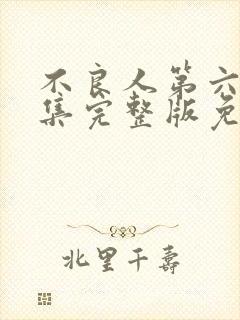 不良人第六
集完整版免
北里千壽